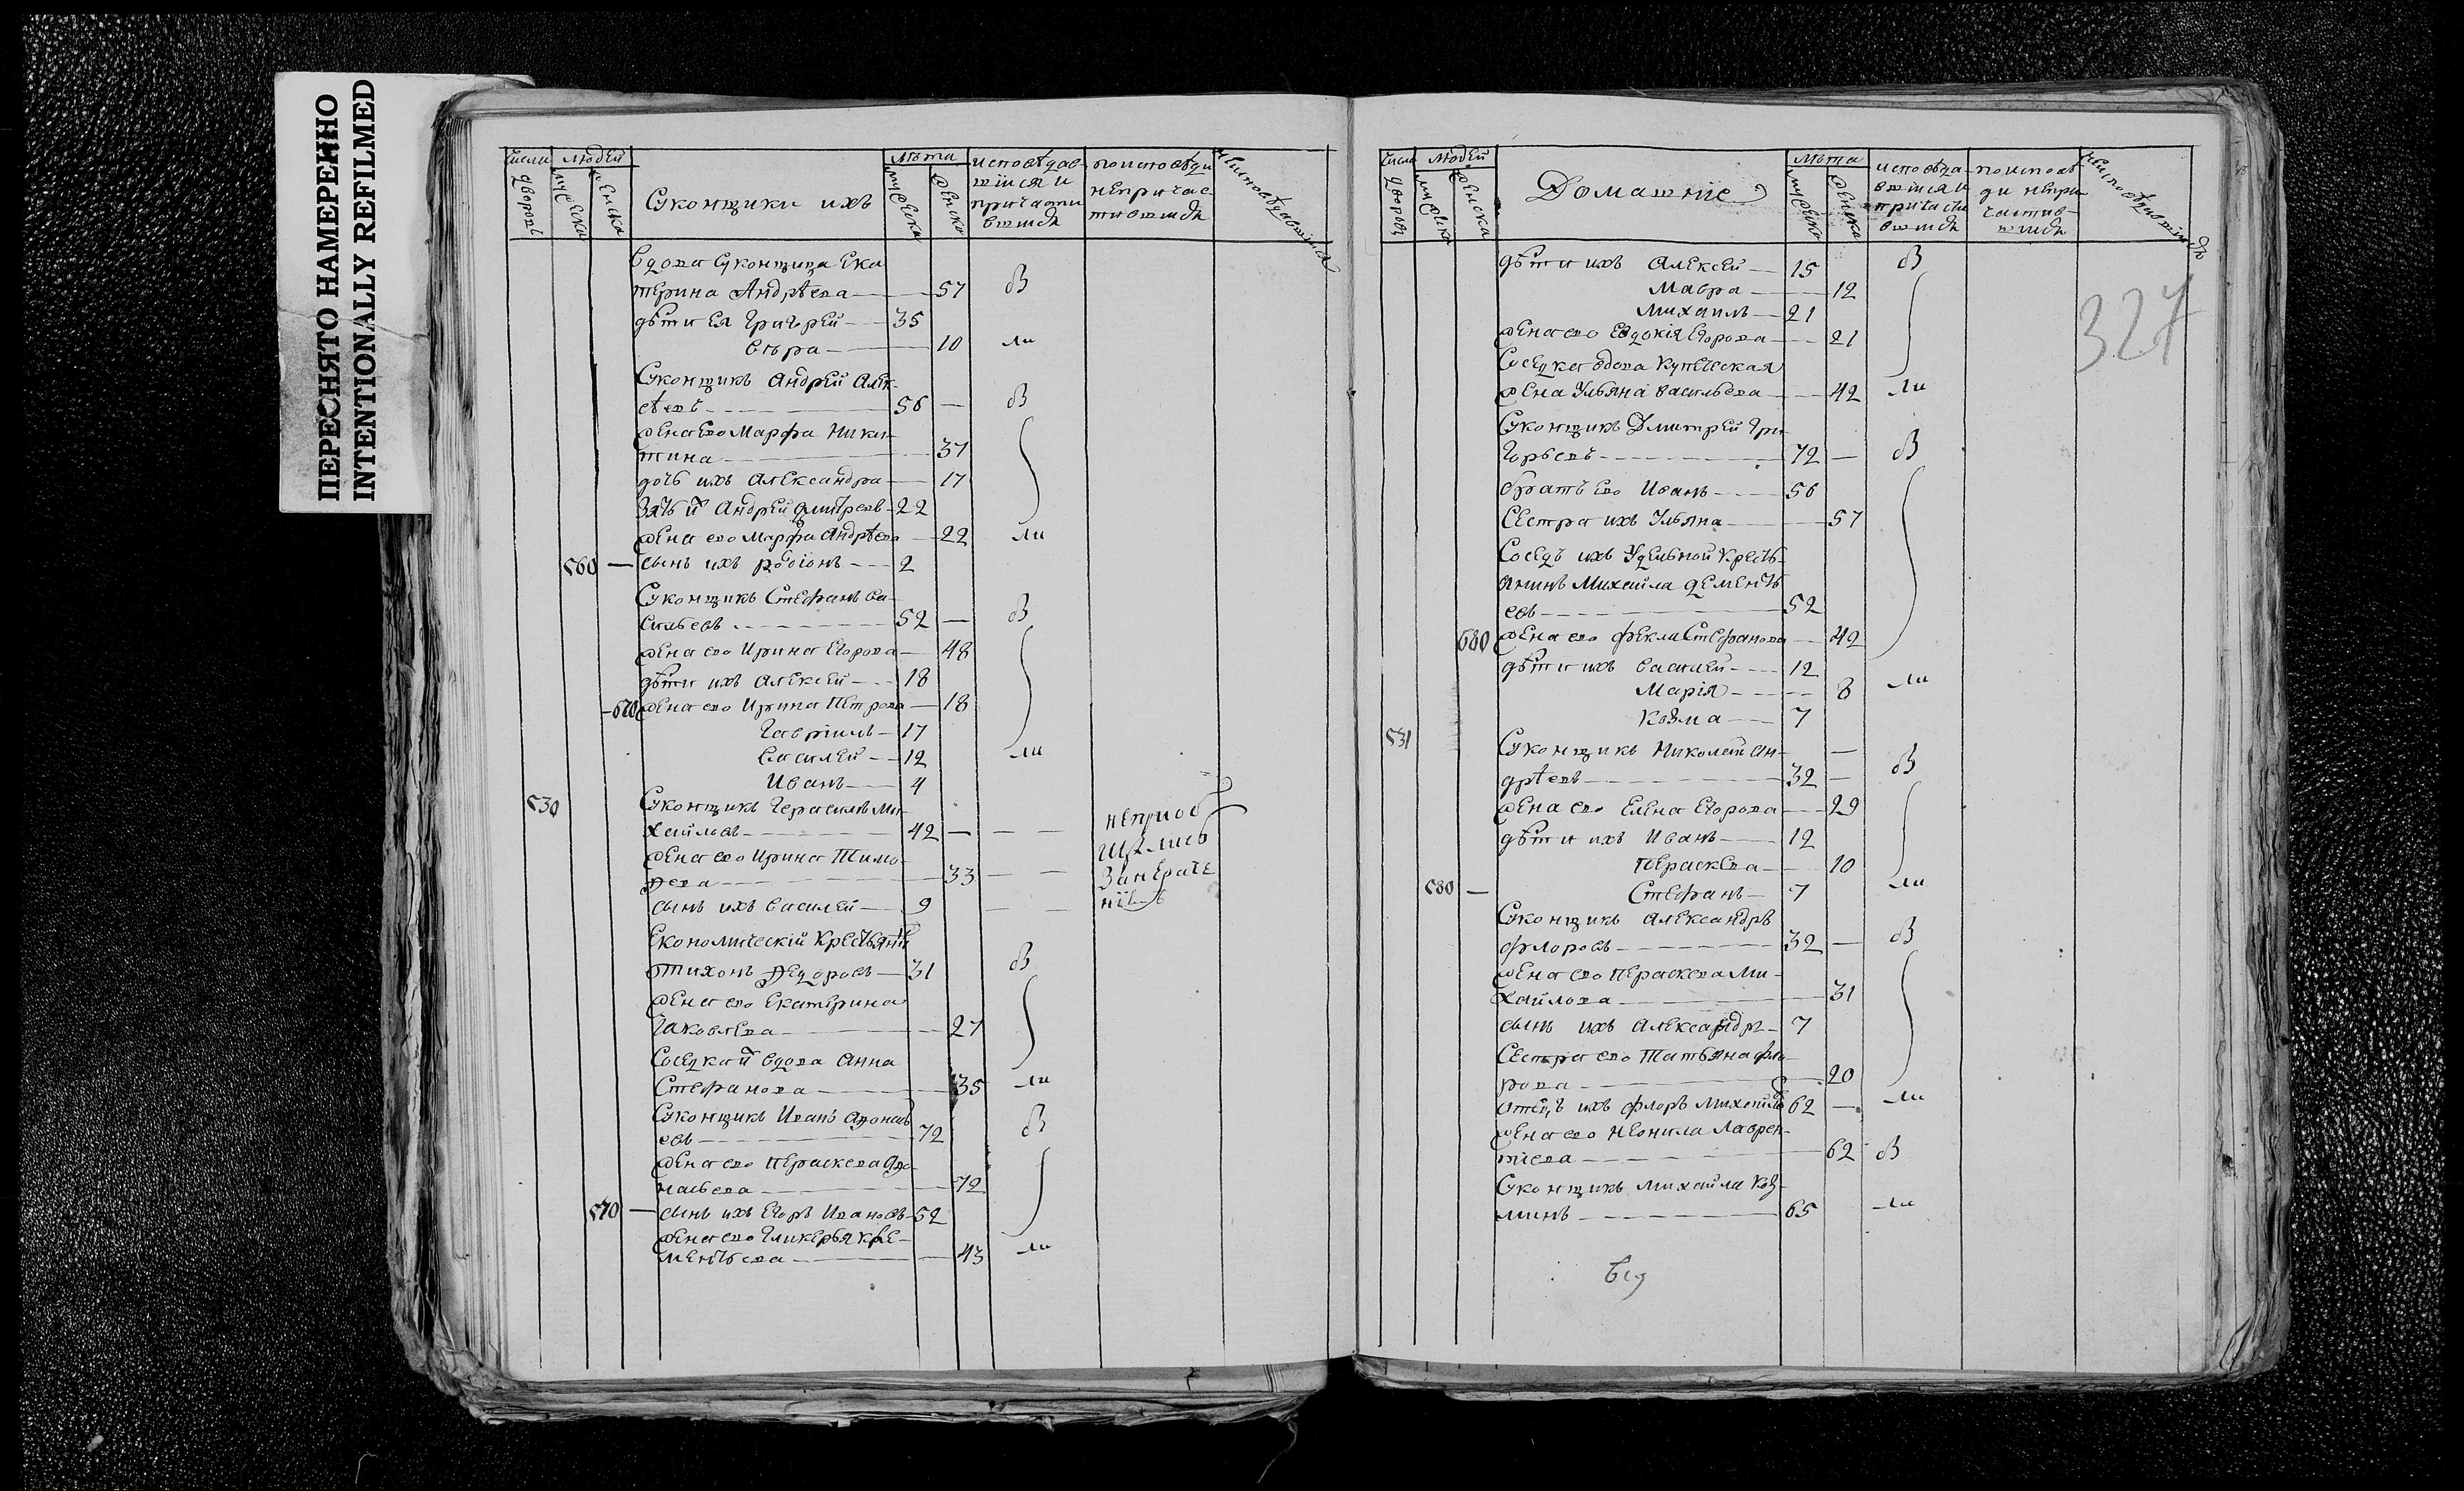 ПЕРЕСНЯТО НАМЕРЕННО
INTENTIONALLY REFILMED
числа дворовъ
людей
мужеска
женска
Суконщики ихъ
лѣта
мужеска
женска
исповѣдав-
шїися и
причасти
вшїися
поисповѣди
непричас-
тившїися
неисповѣдавшїися
вдова Суконщица Ека
терина Андрѣева 57 В
дѣти Ея Григорей 35
вѣра 10 ли
Суконщикъ Андрей Алек-
сѣевъ 56 — В
жена Ево Марфа Ники-
тина 37
дочь ихъ Александра 17
зять Андрей дмитреев 22
жена ево Марфа Андрѣева 22 ли
560 — сынъ ихъ родіонъ 2
Суконщикъ Стефанъ Ва-
сильевъ 52 — В
жена ево Ирина Егорова 48
дѣти ихъ Алексей 18
670 жена ево Ирина Петрова 18
Гавріилъ 17
Василей 12 ли
Иванъ 4
530 Суконщикъ Герасимъ Ми-
хайловъ 42 —
жена ево Ирина Тимо-
феева 33
сынъ ихъ Василей 9
неприоб
щились
Економическій крестьянинъ
Тихонъ Федоровъ 31 В
жена ево Екатерина
Яковлева 27
Соседка вдова Анна
Стефанова 35 ли
Суконщикъ Иванъ Афонась
евъ 72 В
жена ево Пераскева Афо-
насьева 72
570 — сынъ ихъ Егоръ Ивановъ 52
жена ево Гликерья кле-
ментьева 43 ли
числа дворовъ
людей
мужеска
женска
Домашніе
лѣта
мужеска
женска
исповѣда-
вшїися и
причасти
вшїися
поисповѣ
ди непри-
частив-
шїися
неисповѣдавшїися
327
дѣти ихъ Алексей 15 В
Мавра 12
Михаилъ 21
жена ево Евдокія Егорова 21
Соседка вдова купеческая
жена Ульяна васильева 42 ли
Суконщикъ Дмитрей Гри-
горьевъ 72 — В
братъ Ево Иванъ 56
Сестра ихъ Ульяна 57
Соседъ ихъ Удельной кресть-
янинъ Михайла дементь
евъ 52
680 жена ево фекла Стефанова 42
дѣти ихъ Василей 12
Марія 8 ли
козма 7
531 Суконщикъ Николай Ан-
дрѣевъ 32 — В
жена ево Елена Егорова 29
дѣти ихъ Иванъ 12
Пераскева 10
580 — Стефанъ 7 ли
Суконщикъ Александръ
флоровъ 32 — В
жена ево Пераскева Ми-
хайлова 31
сынъ ихъ Александръ 7
Сестра ево Татьяна фло
рова 20
отецъ ихъ флоръ Михайловъ 62 — ли
жена ево Неонила Лаврен-
тиева 62 В
Суконщикъ михайла коз-
минъ 65 ли